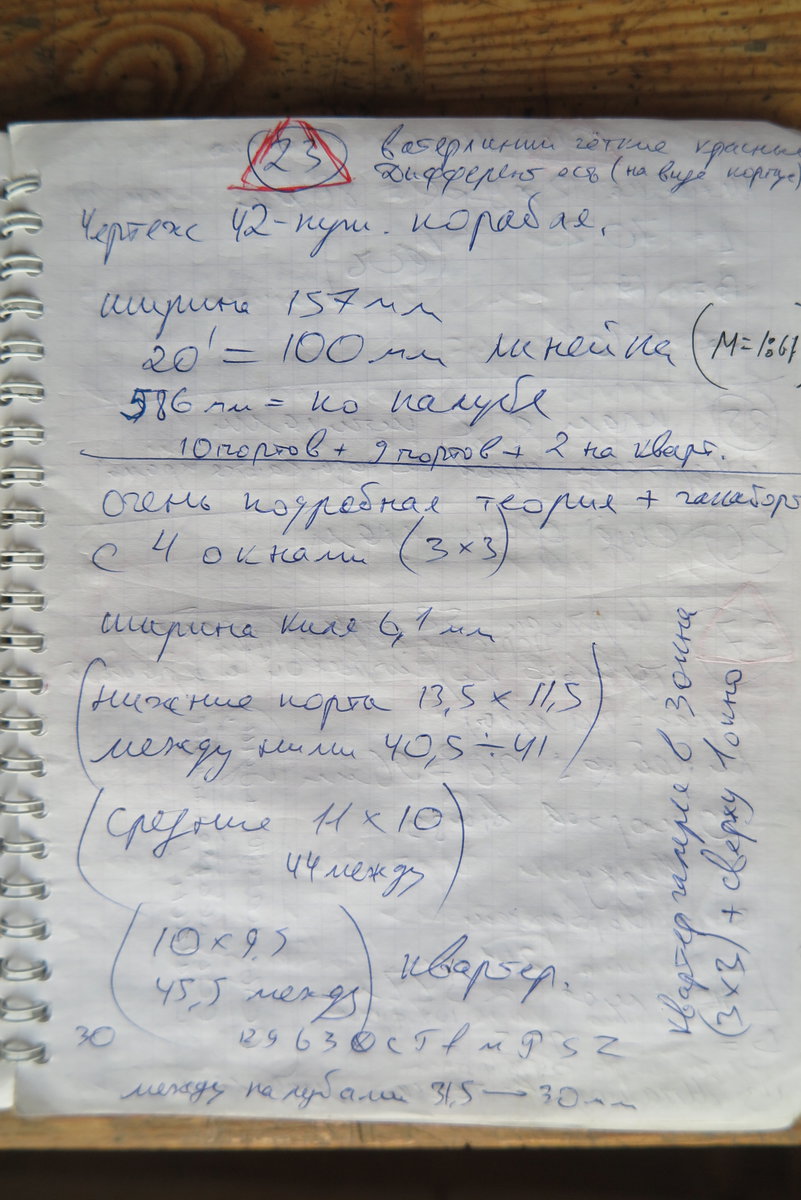 23
ватерлинии чёткие красные
Дифферент ось (на виде корпус)
Чертеж 42-пуш. корабля.
ширина 157 мм
20' = 100 мм линейка (М=1:61)
586 мм = по палубе
10 портов + 9 портов + 2 на кварт.
очень подробная теория + гакаборт
с 4 окнами (3×3)
ширина киля 6,1 мм
(нижние порта 13,5 × 11,5
между ними 40,5 ÷ 41)
(средние 11 × 10
44 между)
(10 × 9,5
45,5 между) квартер.
30
между палубами 31,5 — 30 мм
Квартер галерея в 3 окна
(3×3) + сверху 1 окно